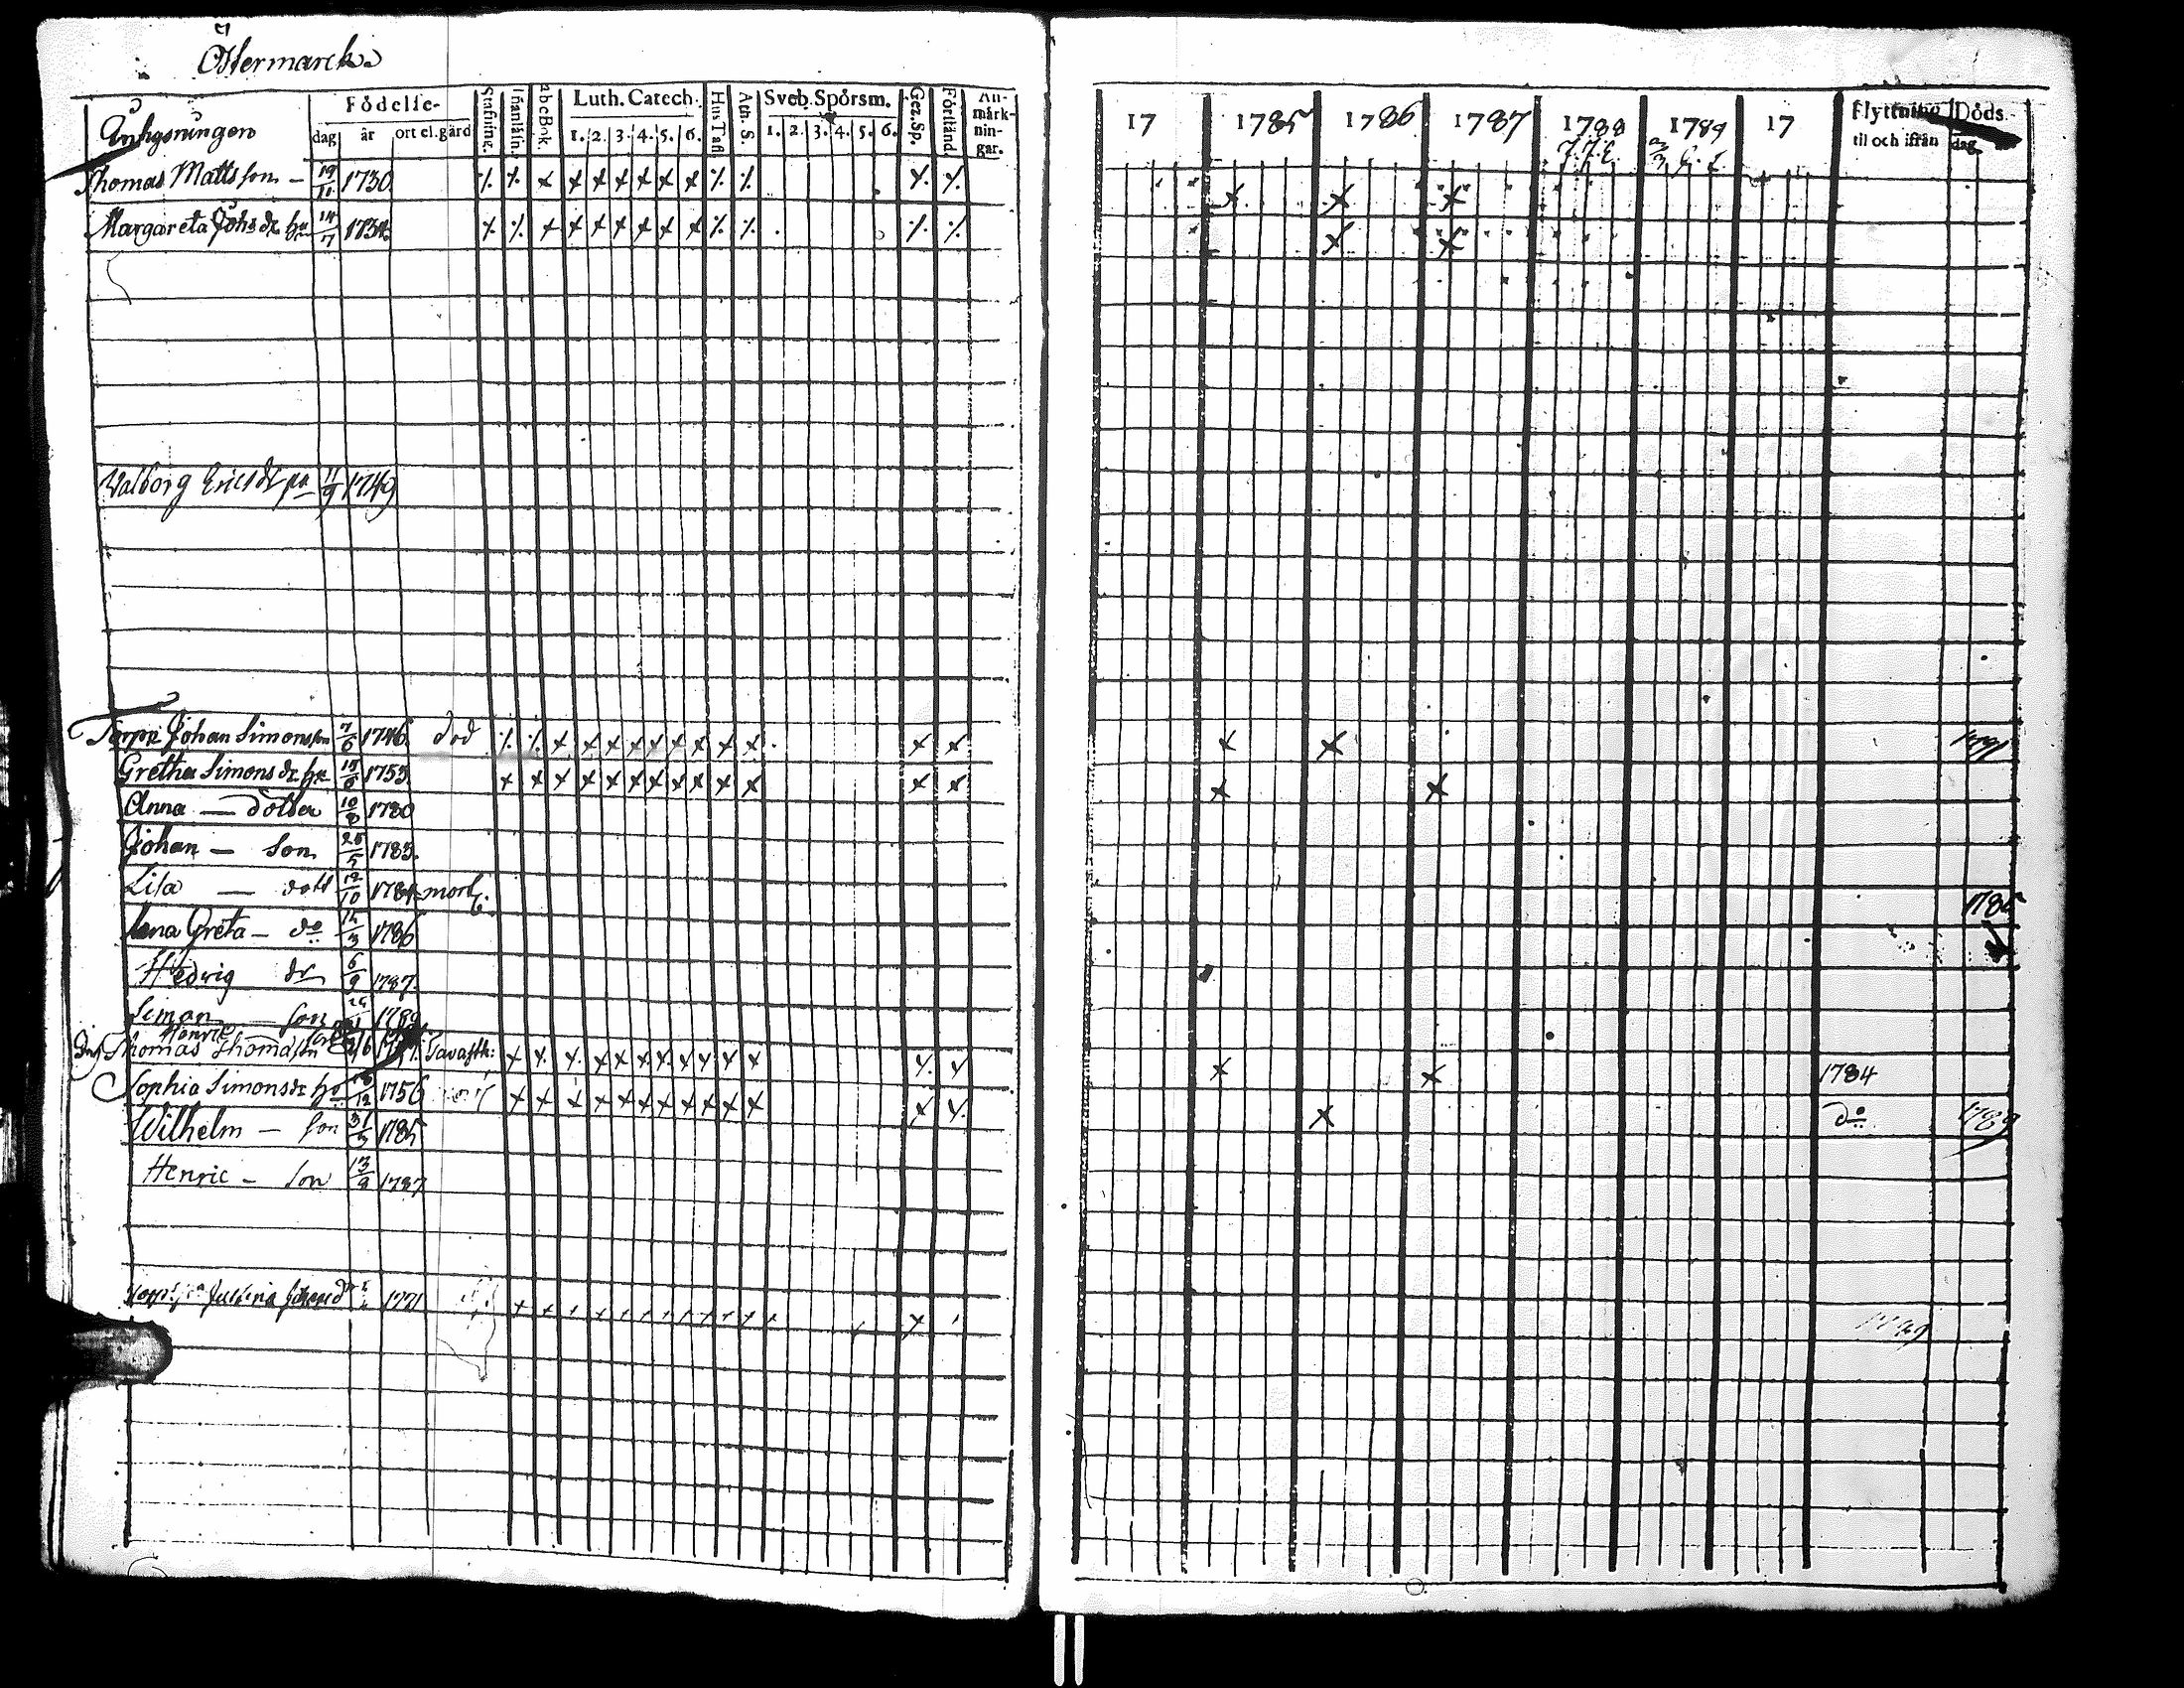 Östermarck
Födelse-
Luth. Catech.
Sveb. Spörsm.
Stafning.
Innanläsn.
abcBok.
Hus Tafl.
Ath. S.
Gez. Sp.
Förstånd.
An-
märk-
nin-
gar.
dag
år
ort el. gård
1. 2. 3. 4. 5. 6.
1. 2. 3. 4. 5. 6.
Thomas Matts son — 19/11 1730
Margareta Johs dr hu 14/7 1734
Valborg Ericsdr 11/9 1749
Torp Johan Simonsson 7/6 1746 död
Gretha Simons dr hu 1753
Anna — dotter 10/8 1780
Johan — Son 25/5 1783
Lisa — dott 12/10 1784 mort.
Lena Greta — do 1786
Hedvig dr 6/9 1787
Simon — Son 1789
Henric
Thomas Thomasson Tavastk:
Sophia Simonsdr hu 1756
Wilhelm — son 31/3 1785
Henric — Son 13/9 1787
Justina 1771
17 1785 1786 1787 1788 1789 17
Flyttning
til och ifrån
Döds
dag
1791
1785
1784
do
1789